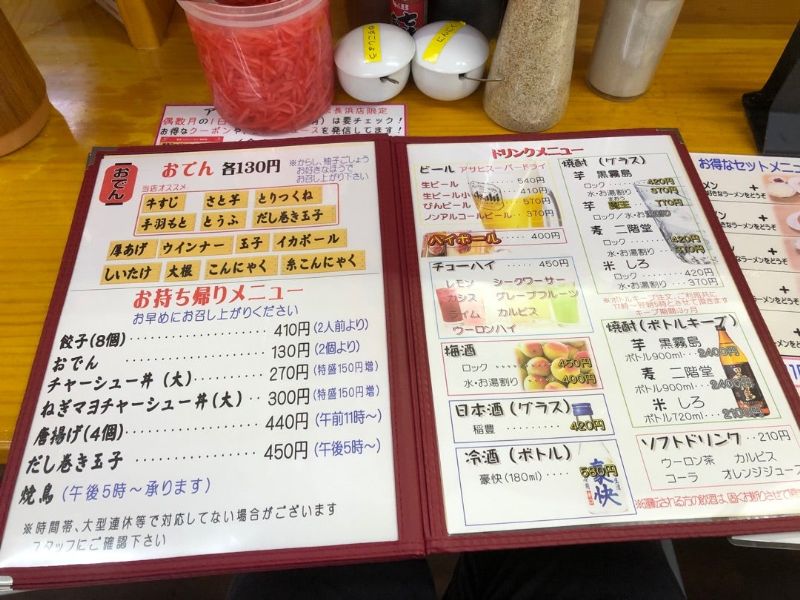 こしょう
にんにく
長浜店限定
偶数月の1日
月)は要チェック!
お得なクーポンや
ースを発信してます!
おでん
おでん 各130円
※からし、柚子ごしょう
お好きなほうで
お召し上がり下さい
当店オススメ
牛すじ さと芋 とりつくね
手羽もと とうふ だし巻き玉子
厚あげ ウインナー 玉子 イカボール
しいたけ 大根 こんにゃく 糸こんにゃく
お持ち帰りメニュー
お早めにお召し上がりください
餃子(8個) 410円(2人前より)
おでん 130円(2個より)
チャーシュー丼(大) 270円(特盛150円増)
ねぎマヨチャーシュー丼(大) 300円(特盛150円増)
唐揚げ(4個) 440円(午前11時~)
だし巻き玉子 450円(午後5時~)
焼鳥(午後5時~承ります)
※時間帯、大型連休等で対応してない場合がございます
スタッフにご確認下さい
ドリンクメニュー
ビール アサヒスーパードライ
生ビール 540円
生ビール小 410円
びんビール 570円
ノンアルコールビール 370円
ハイボール 400円
チューハイ 450円
レモン シークワーサー
カシス グレープフルーツ
ライム カルピス
ウーロンハイ
梅酒
ロック 450円
水・お湯割り 400円
日本酒(グラス)
稲豊 420円
冷酒(ボトル)
豪快(180ml) 580円
豪快
焼酎(グラス)
芋 黒霧島
ロック 420円
水・お湯割り 370円
芋 魔王 770円
ロック/水・お湯割り
麦 二階堂
ロック 420円
水・お湯割り 370円
米 しろ
ロック 420円
水・お湯割り 370円
焼酎(ボトルキープ)
芋 黒霧島
ボトル900ml 2400円
麦 二階堂
ボトル900ml 2400円
米 しろ
ボトル720ml 2100円
ソフトドリンク 210円
ウーロン茶 カルピス
コーラ オレンジジュース
お得なセットメニュ